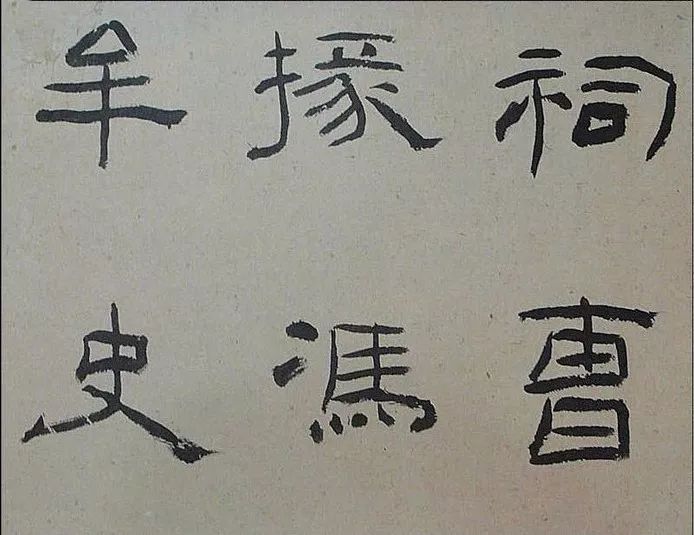 祠曹
掾馮
牟史